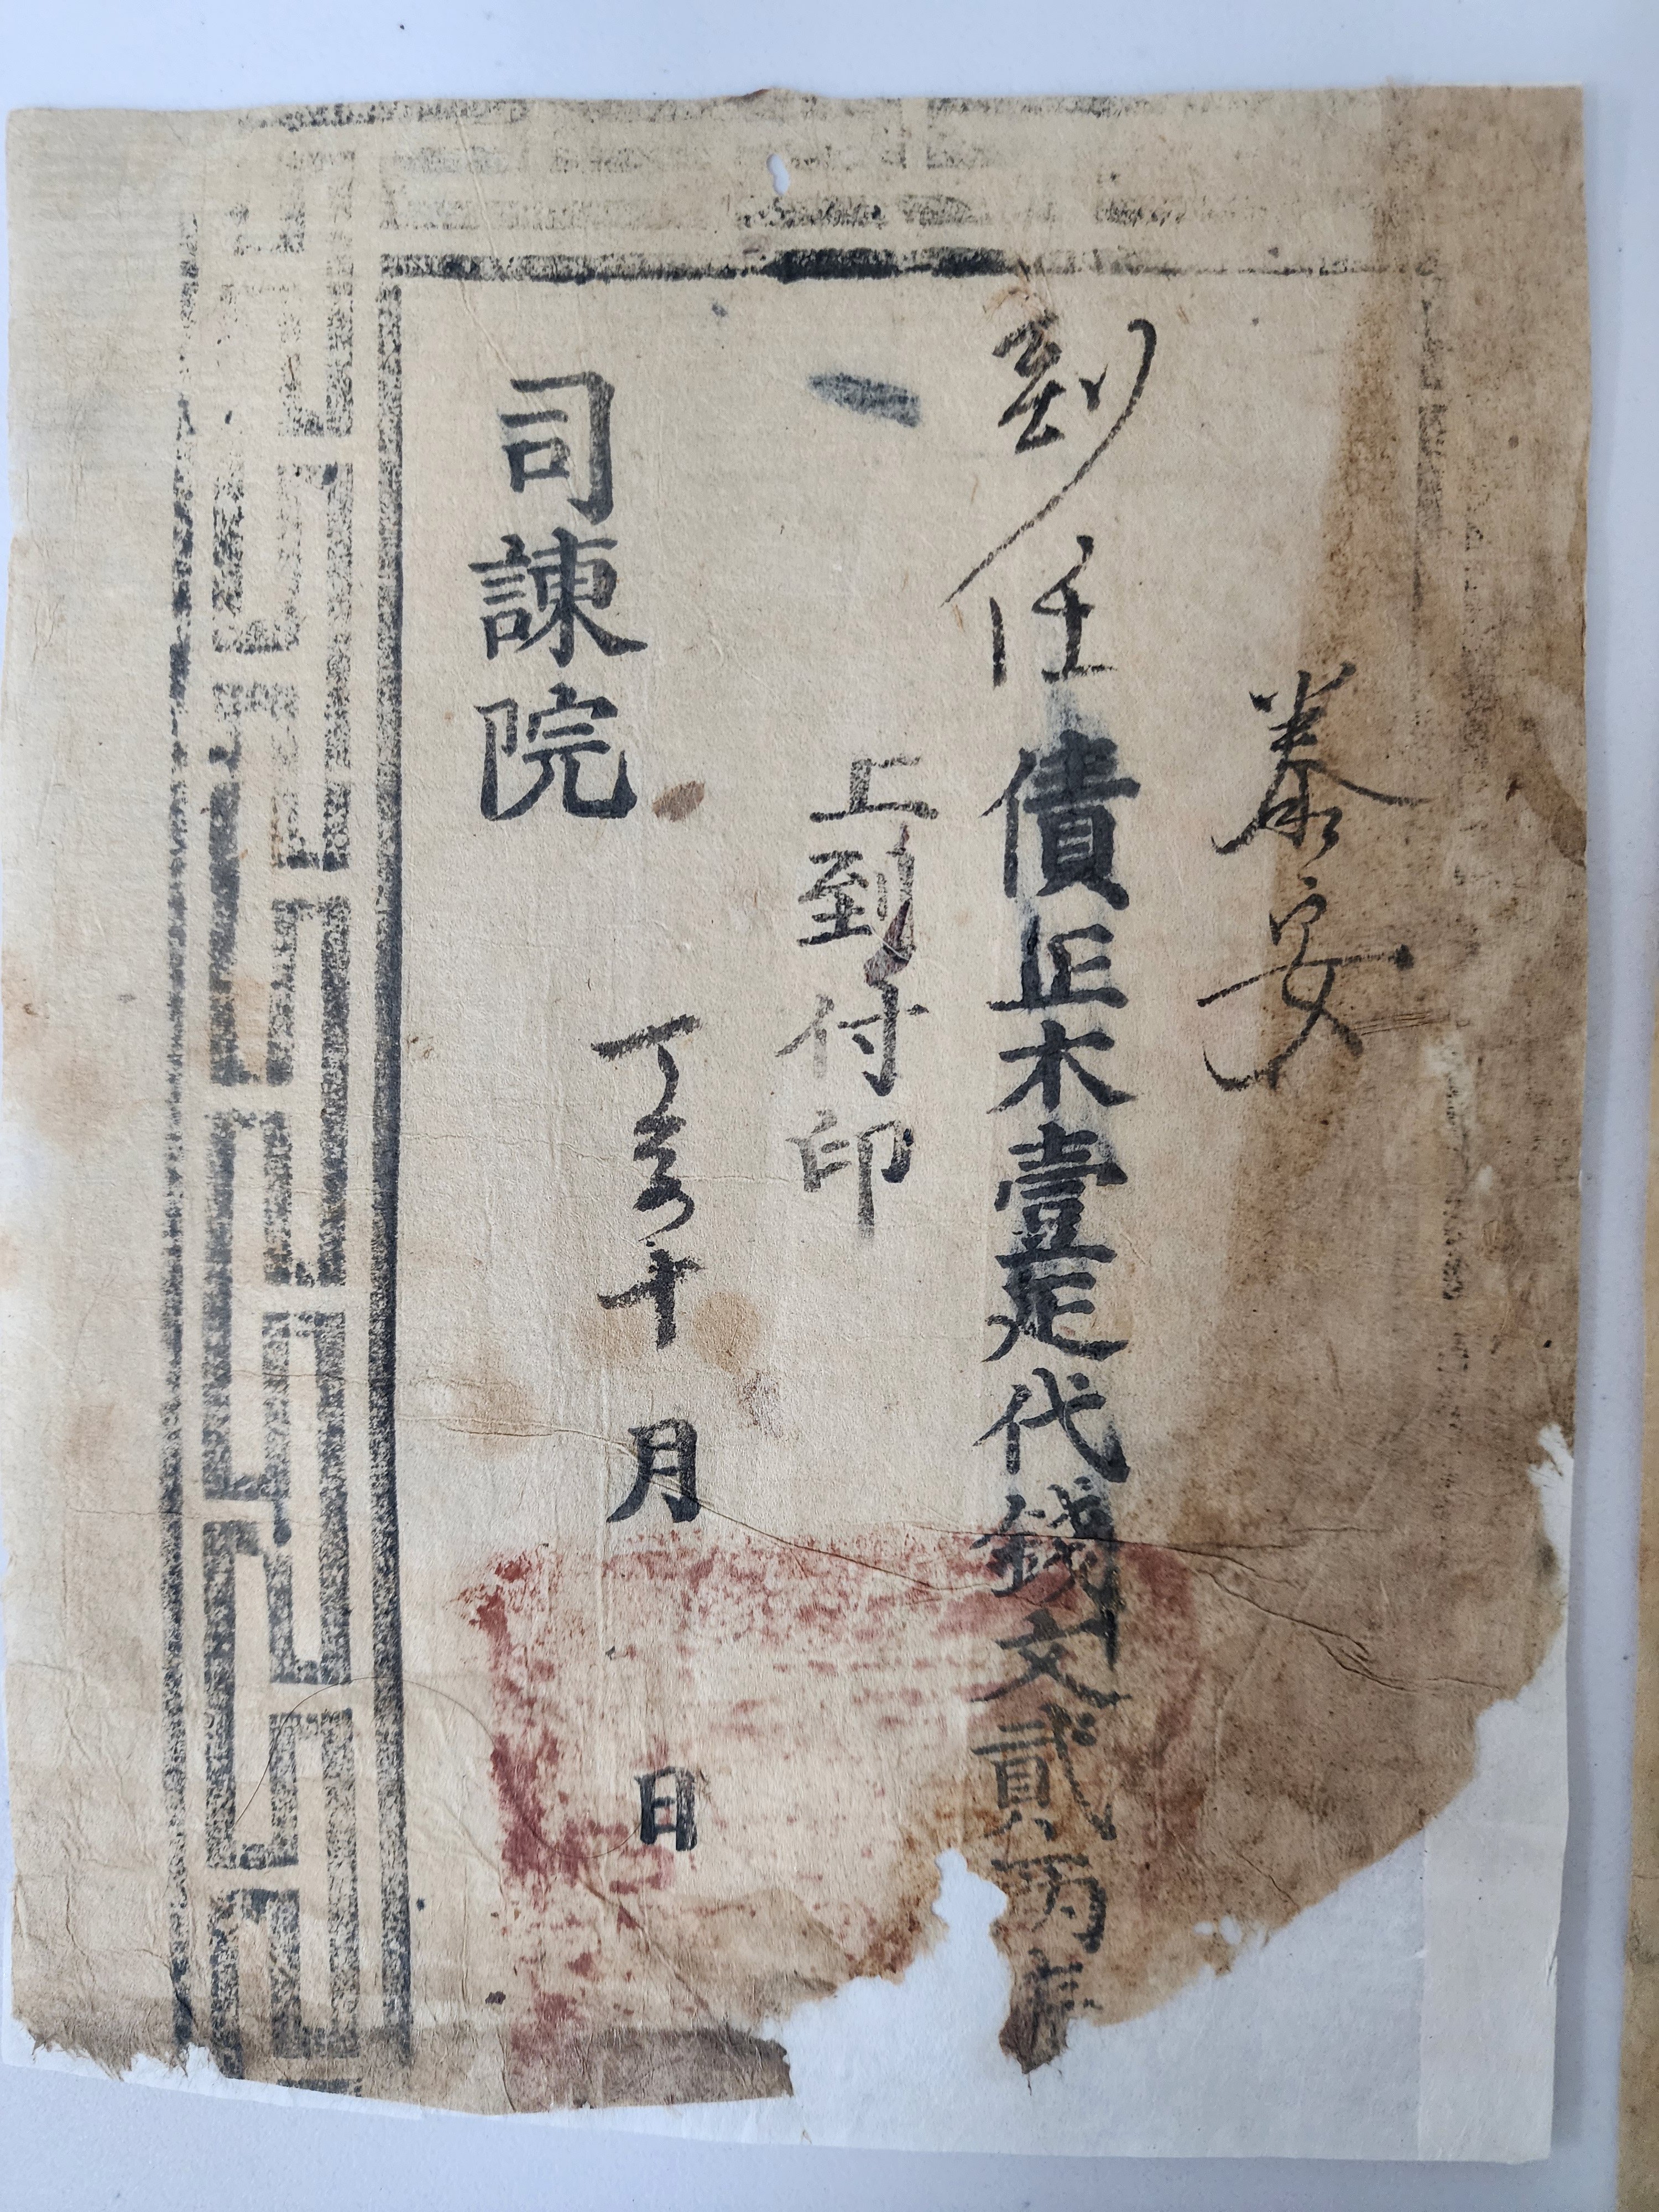 泰安
到任債正木壹疋代錢文貳兩
上到付印
丁亥十月 日
司諫院